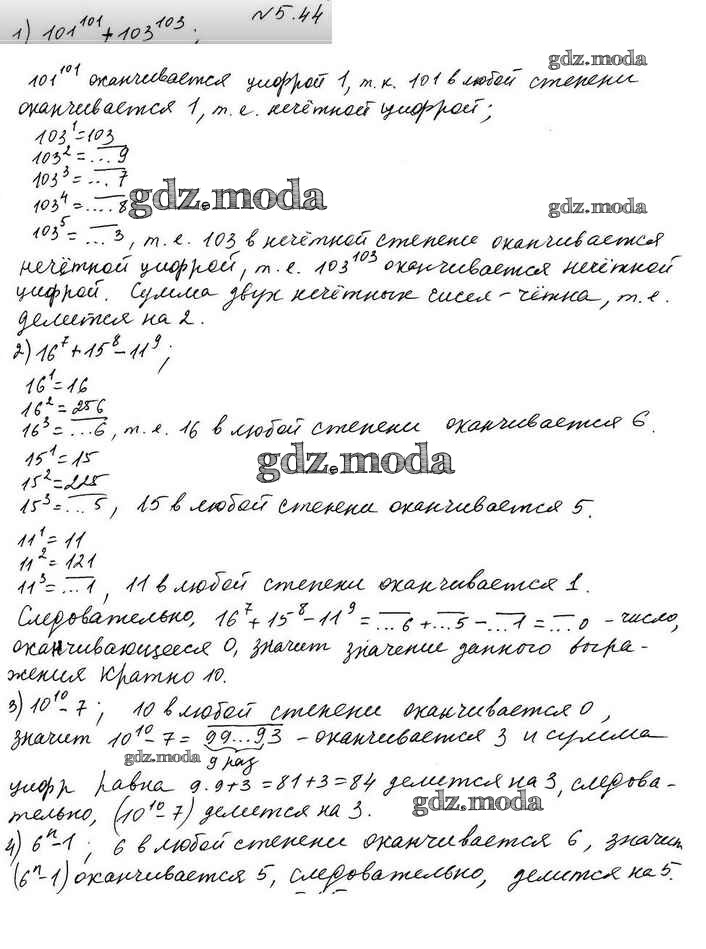 №5.44
1) 101^101 + 103^103;
gdz.moda
101^101 оканчивается цифрой 1, т.к. 101 в любой степени
оканчивается 1, т.е. нечётной цифрой;
103^1 = 103
103^2 = ...9
103^3 = ...7
103^4 = ....8
gdz.moda
gdz.moda
103^5 = ...3, т.е. 103 в нечётной степени оканчивается
нечётной цифрой, т.е. 103^103 оканчивается нечётной
цифрой. Сумма двух нечётных чисел – чётна, т.е.
делится на 2.
2) 16^7 + 15^8 – 11^9;
16^1 = 16
16^2 = 256
16^3 = ...6, т.е. 16 в любой степени оканчивается 6.
15^1 = 15
gdz.moda
15^2 = 225
15^3 = ...5, 15 в любой степени оканчивается 5.
11^1 = 11
11^2 = 121
11^3 = ...1, 11 в любой степени оканчивается 1.
Следовательно, 16^7 + 15^8 – 11^9 = ...6 + ...5 – ...1 = ...0 – число,
оканчивающееся 0, значит значение данного выра-
жения кратно 10.
3) 10^10 – 7; 10 в любой степени оканчивается 0,
значит 10^10 – 7 = 99...93 – оканчивается 3 и сумма
gdz.moda
9 раз
цифр равна 9·9+3=81+3=84 делится на 3, следова-
тельно, (10^10 – 7) делится на 3.
gdz.moda
4) 6^n – 1; 6 в любой степени оканчивается 6, значит
(6^n – 1) оканчивается 5, следовательно, делится на 5.